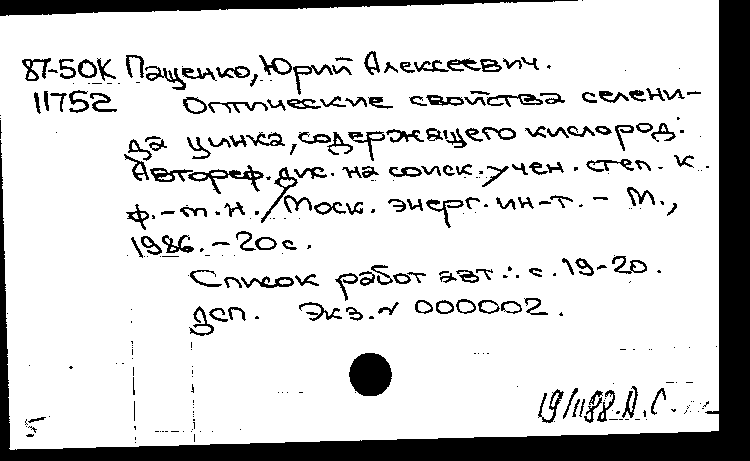 87-50К Пащенко, Юрий Алексеевич.
11752 Оптические свойства селени-
да цинка, содержащего кислород:
Автореф. дис. на соиск. учен. степ. к.
ф.-т.н. / Моск. энерг. ин-т. - М.,
1986. - 20 с.
Список работ авт.: с. 19-20.
ДСП. Экз. N 000002.
19/II 88. А.С.
5